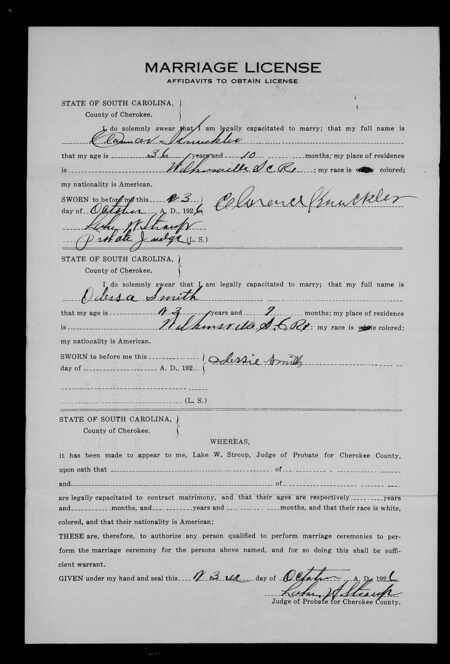 MARRIAGE LICENSE
AFFIDAVITS TO OBTAIN LICENSE
STATE OF SOUTH CAROLINA,
County of Cherokee.
I do solemnly swear that I am legally capacitated to marry; that my full name is
Knuckles
that my age is 36 years and 10 months; my place of residence
is Wilkinsville S. C. R1 ; my race is colored;
my nationality is American.
SWORN to before me this 23
day of October A. D., 1926 Clarence Knuckles
Lake W Stroup
Probate Judge (L. S.)
STATE OF SOUTH CAROLINA,
County of Cherokee.
I do solemnly swear that I am legally capacitated to marry; that my full name is
Odessa Smith
that my age is years and months; my place of residence
is Wilkinsville S. C R1 ; my race is colored;
my nationality is American.
SWORN to before me this Odessie Smith
day of A. D., 192
(L. S.)
STATE OF SOUTH CAROLINA,
County of Cherokee.
WHEREAS,
it has been made to appear to me, Lake W. Stroup, Judge of Probate for Cherokee County,
upon oath that of
and of
are legally capacitated to contract matrimony, and that their ages are respectively years
and months, and years and months, and that their race is white,
colored, and that their nationality is American;
THESE are, therefore, to authorize any person qualified to perform marriage ceremonies to per-
form the marriage ceremony for the persons above named, and for so doing this shall be suffi-
cient warrant.
GIVEN under my hand and seal this 23rd day of October A. D., 1926
Lake W Stroup
Judge of Probate for Cherokee County.